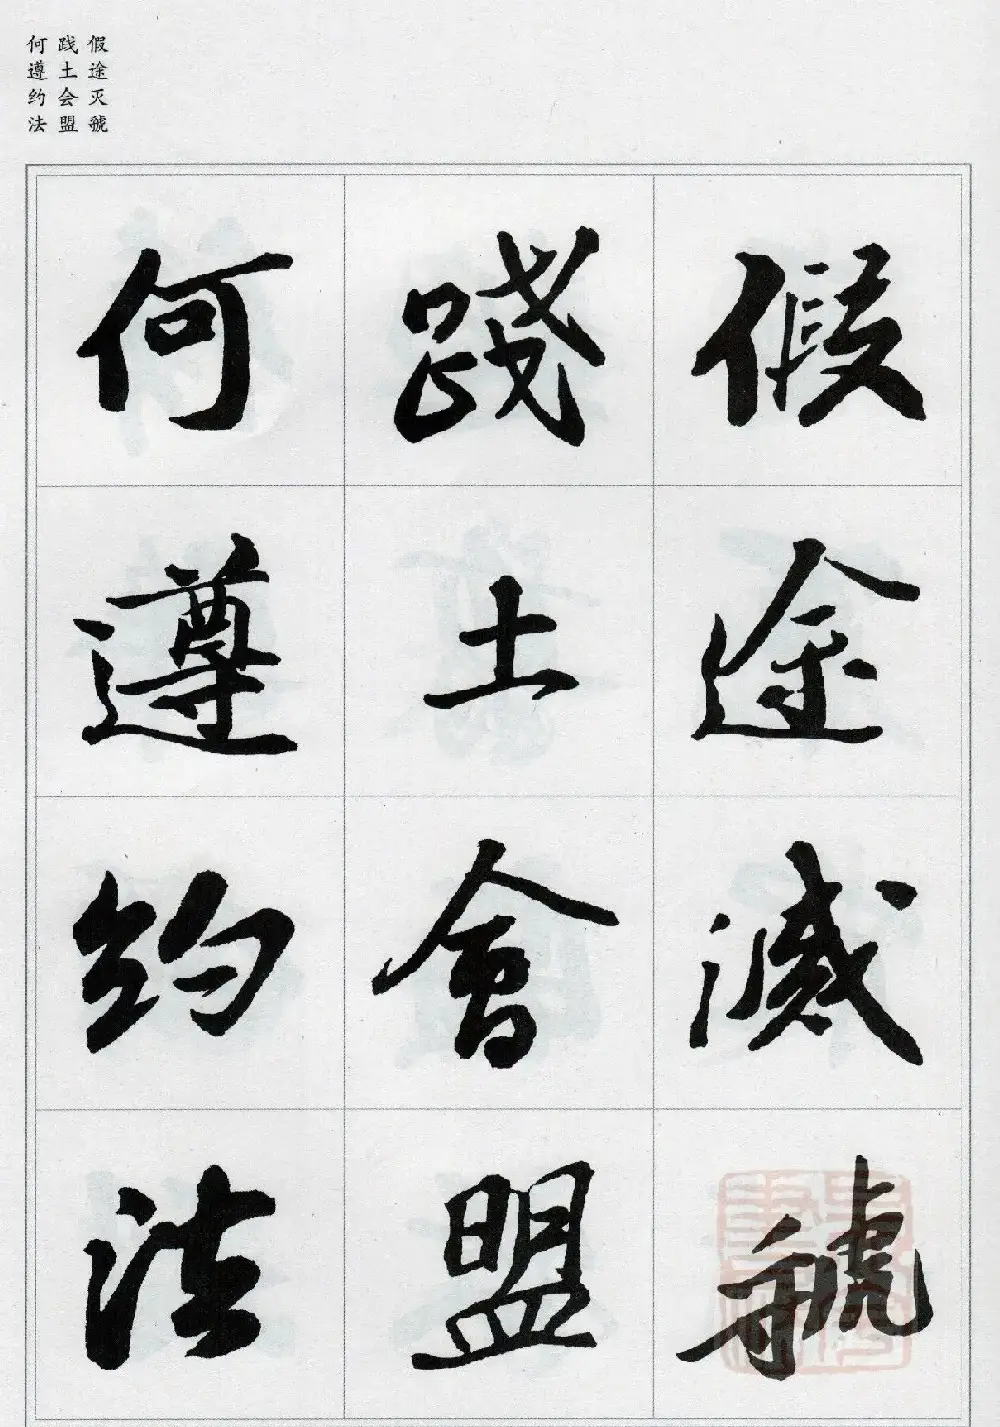 假途灭虢
践土会盟
何遵约法
假途滅虢
踐土會盟
何遵約法